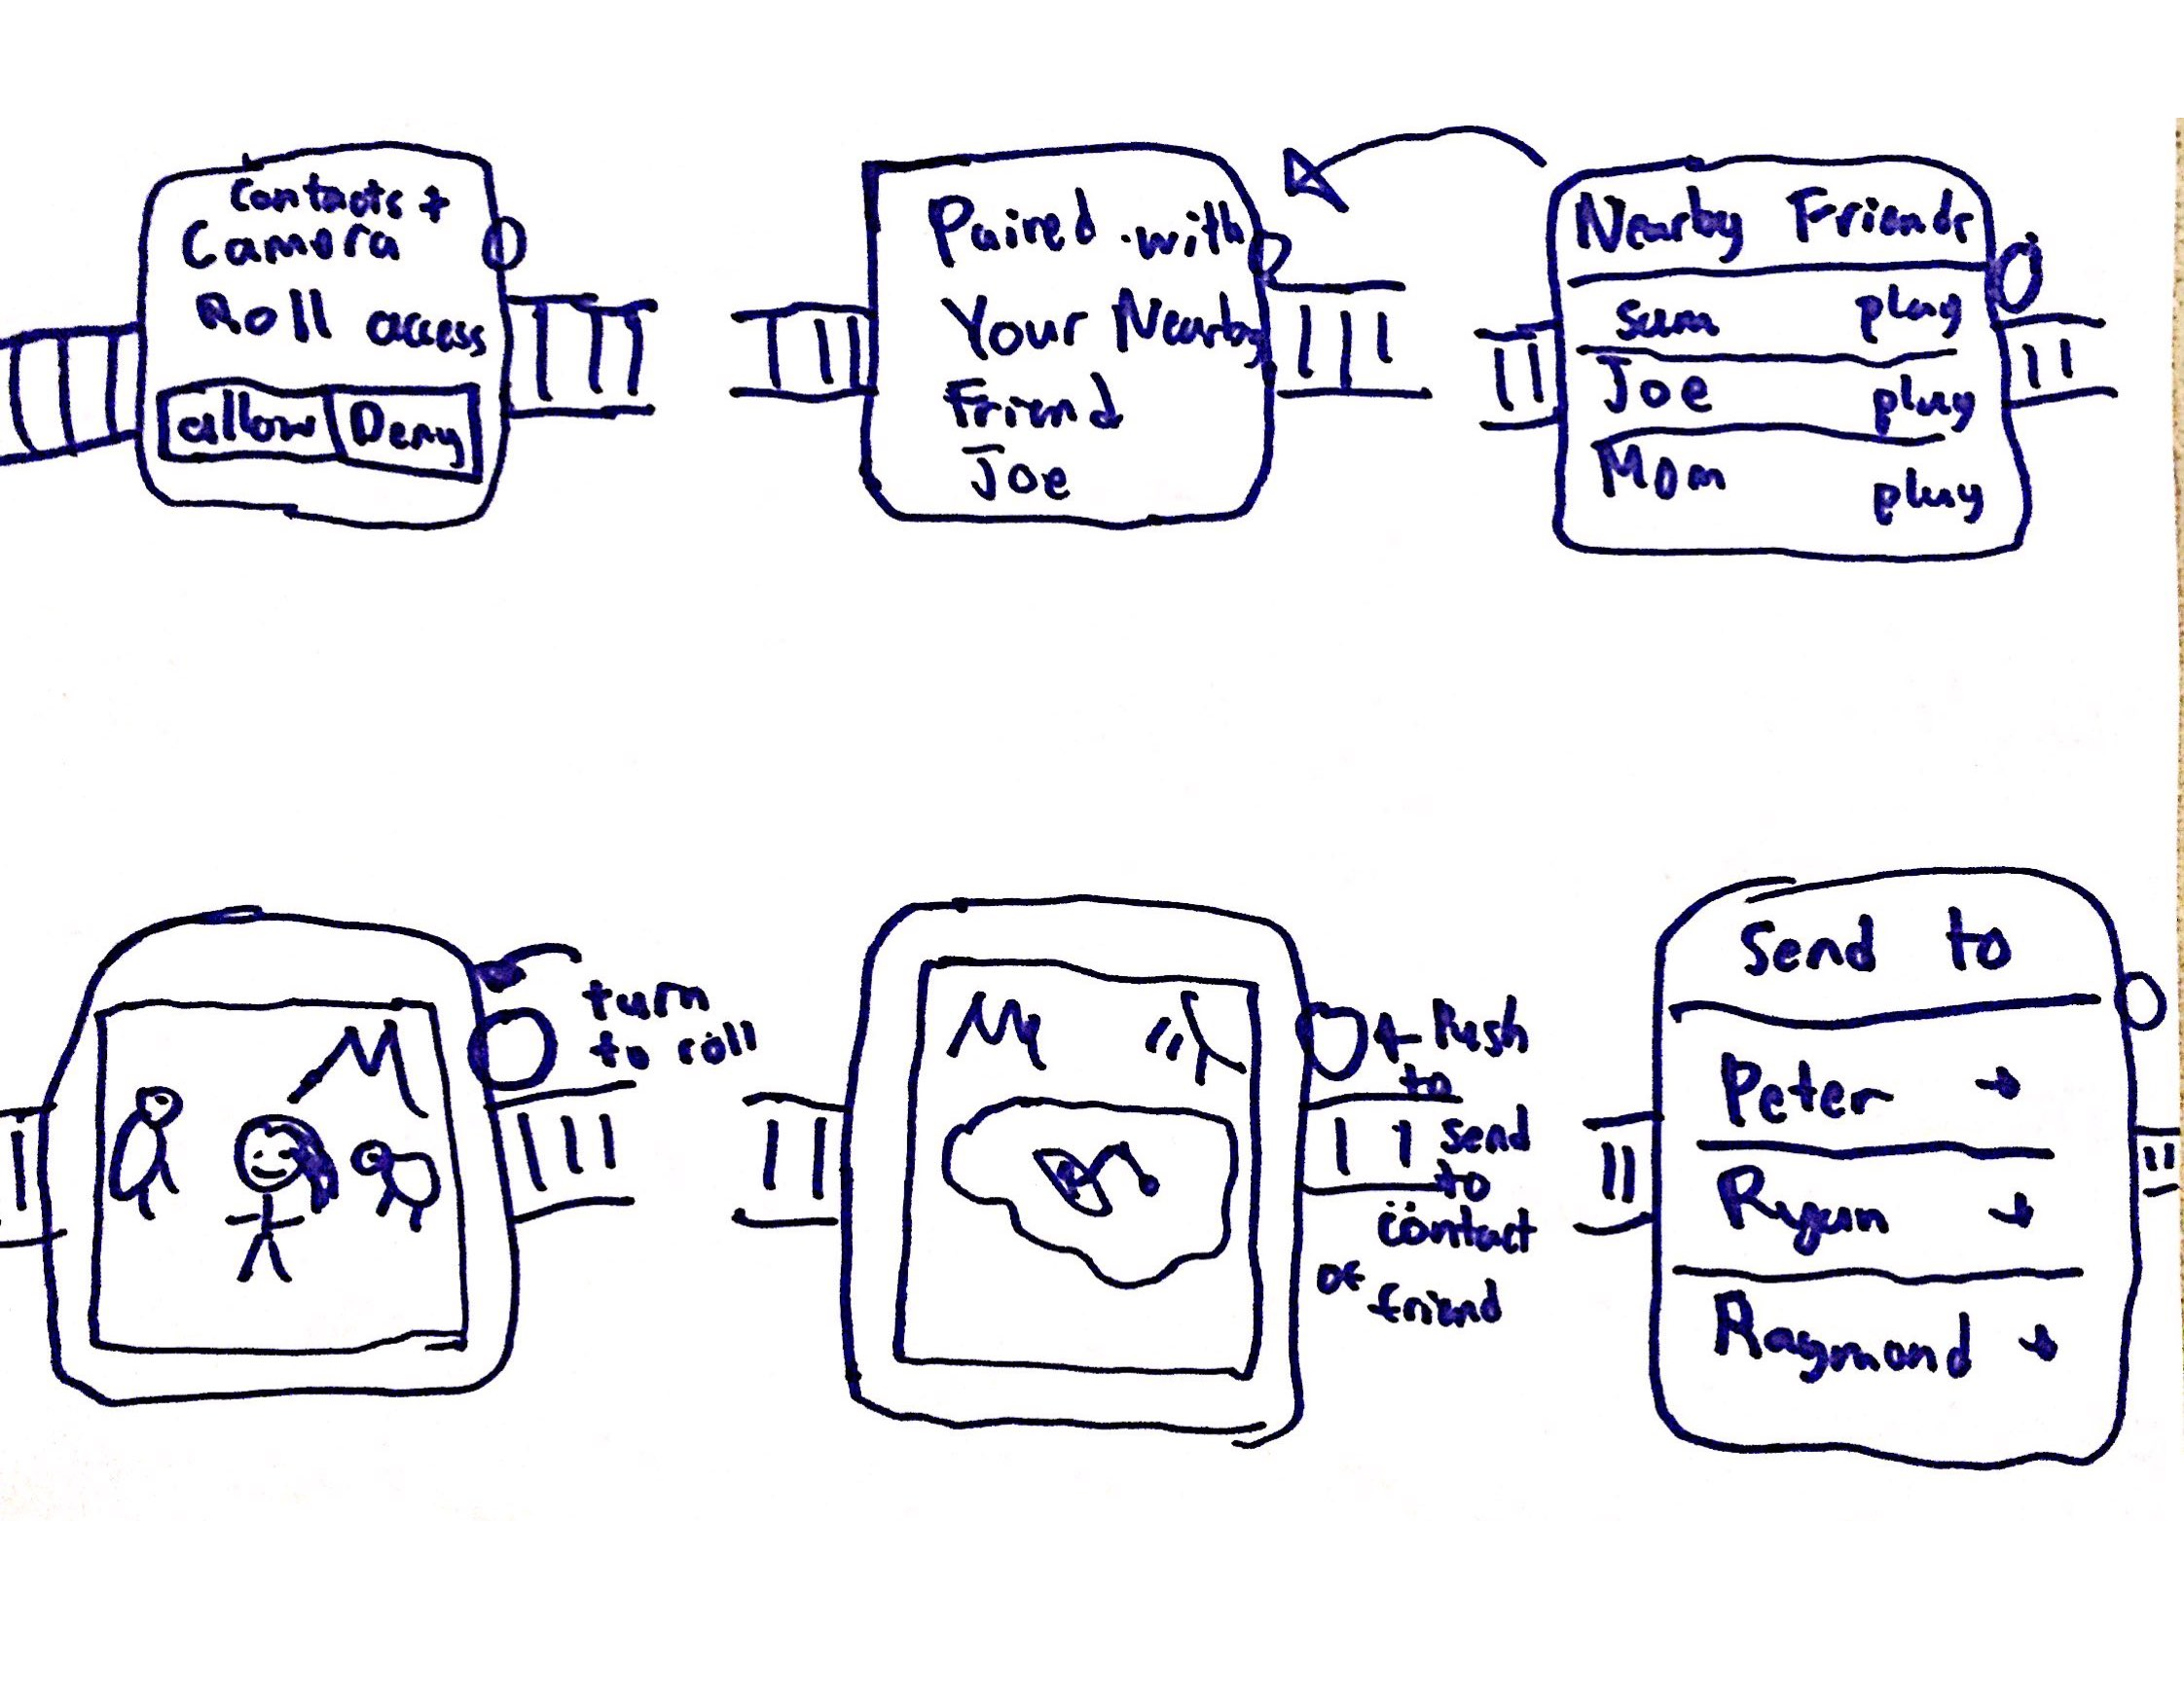 Contacts +
Camera
Roll access
allow Deny
Paired with
Your Nearby
Friend
Joe
Nearby Friends
Sam play
Joe play
Mom play
turn
to roll
Push
to
send
to
contact
or
friend
Send to
Peter →
Ryan →
Raymond →